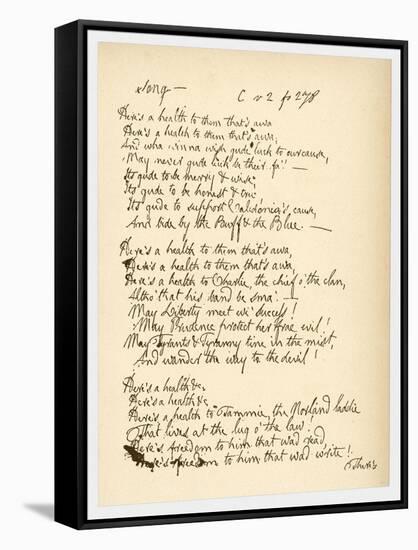 Song —
C v 2 fo 278
Here's a health to them that's awa
Here's a health to them that's awa;
And wha winna wish gude luck to our cause,
May never gude luck be their fa'! —
Its gude to be merry & wise,
Its gude to be honest & true
Its gude to support Caledonia's cause,
And bide by the Buff & the Blue. —
Here's a health to them that's awa,
Here's a health to them that's awa,
Here's a health to Charlie, the chief o' the clan,
Altho' that his band be sma'. —
May Liberty meet wi' success!
May Prudence protect her frae evil!
May Tyrants & Tyranny tine in the mist,
And wander the way to the devil!
Here's a health &c.
Here's a health &c
Here's a health to Tammie, the Norland laddie
That lives at the lug o' the law:
Here's freedom to him that wad read,
Here's freedom to him that wad write!